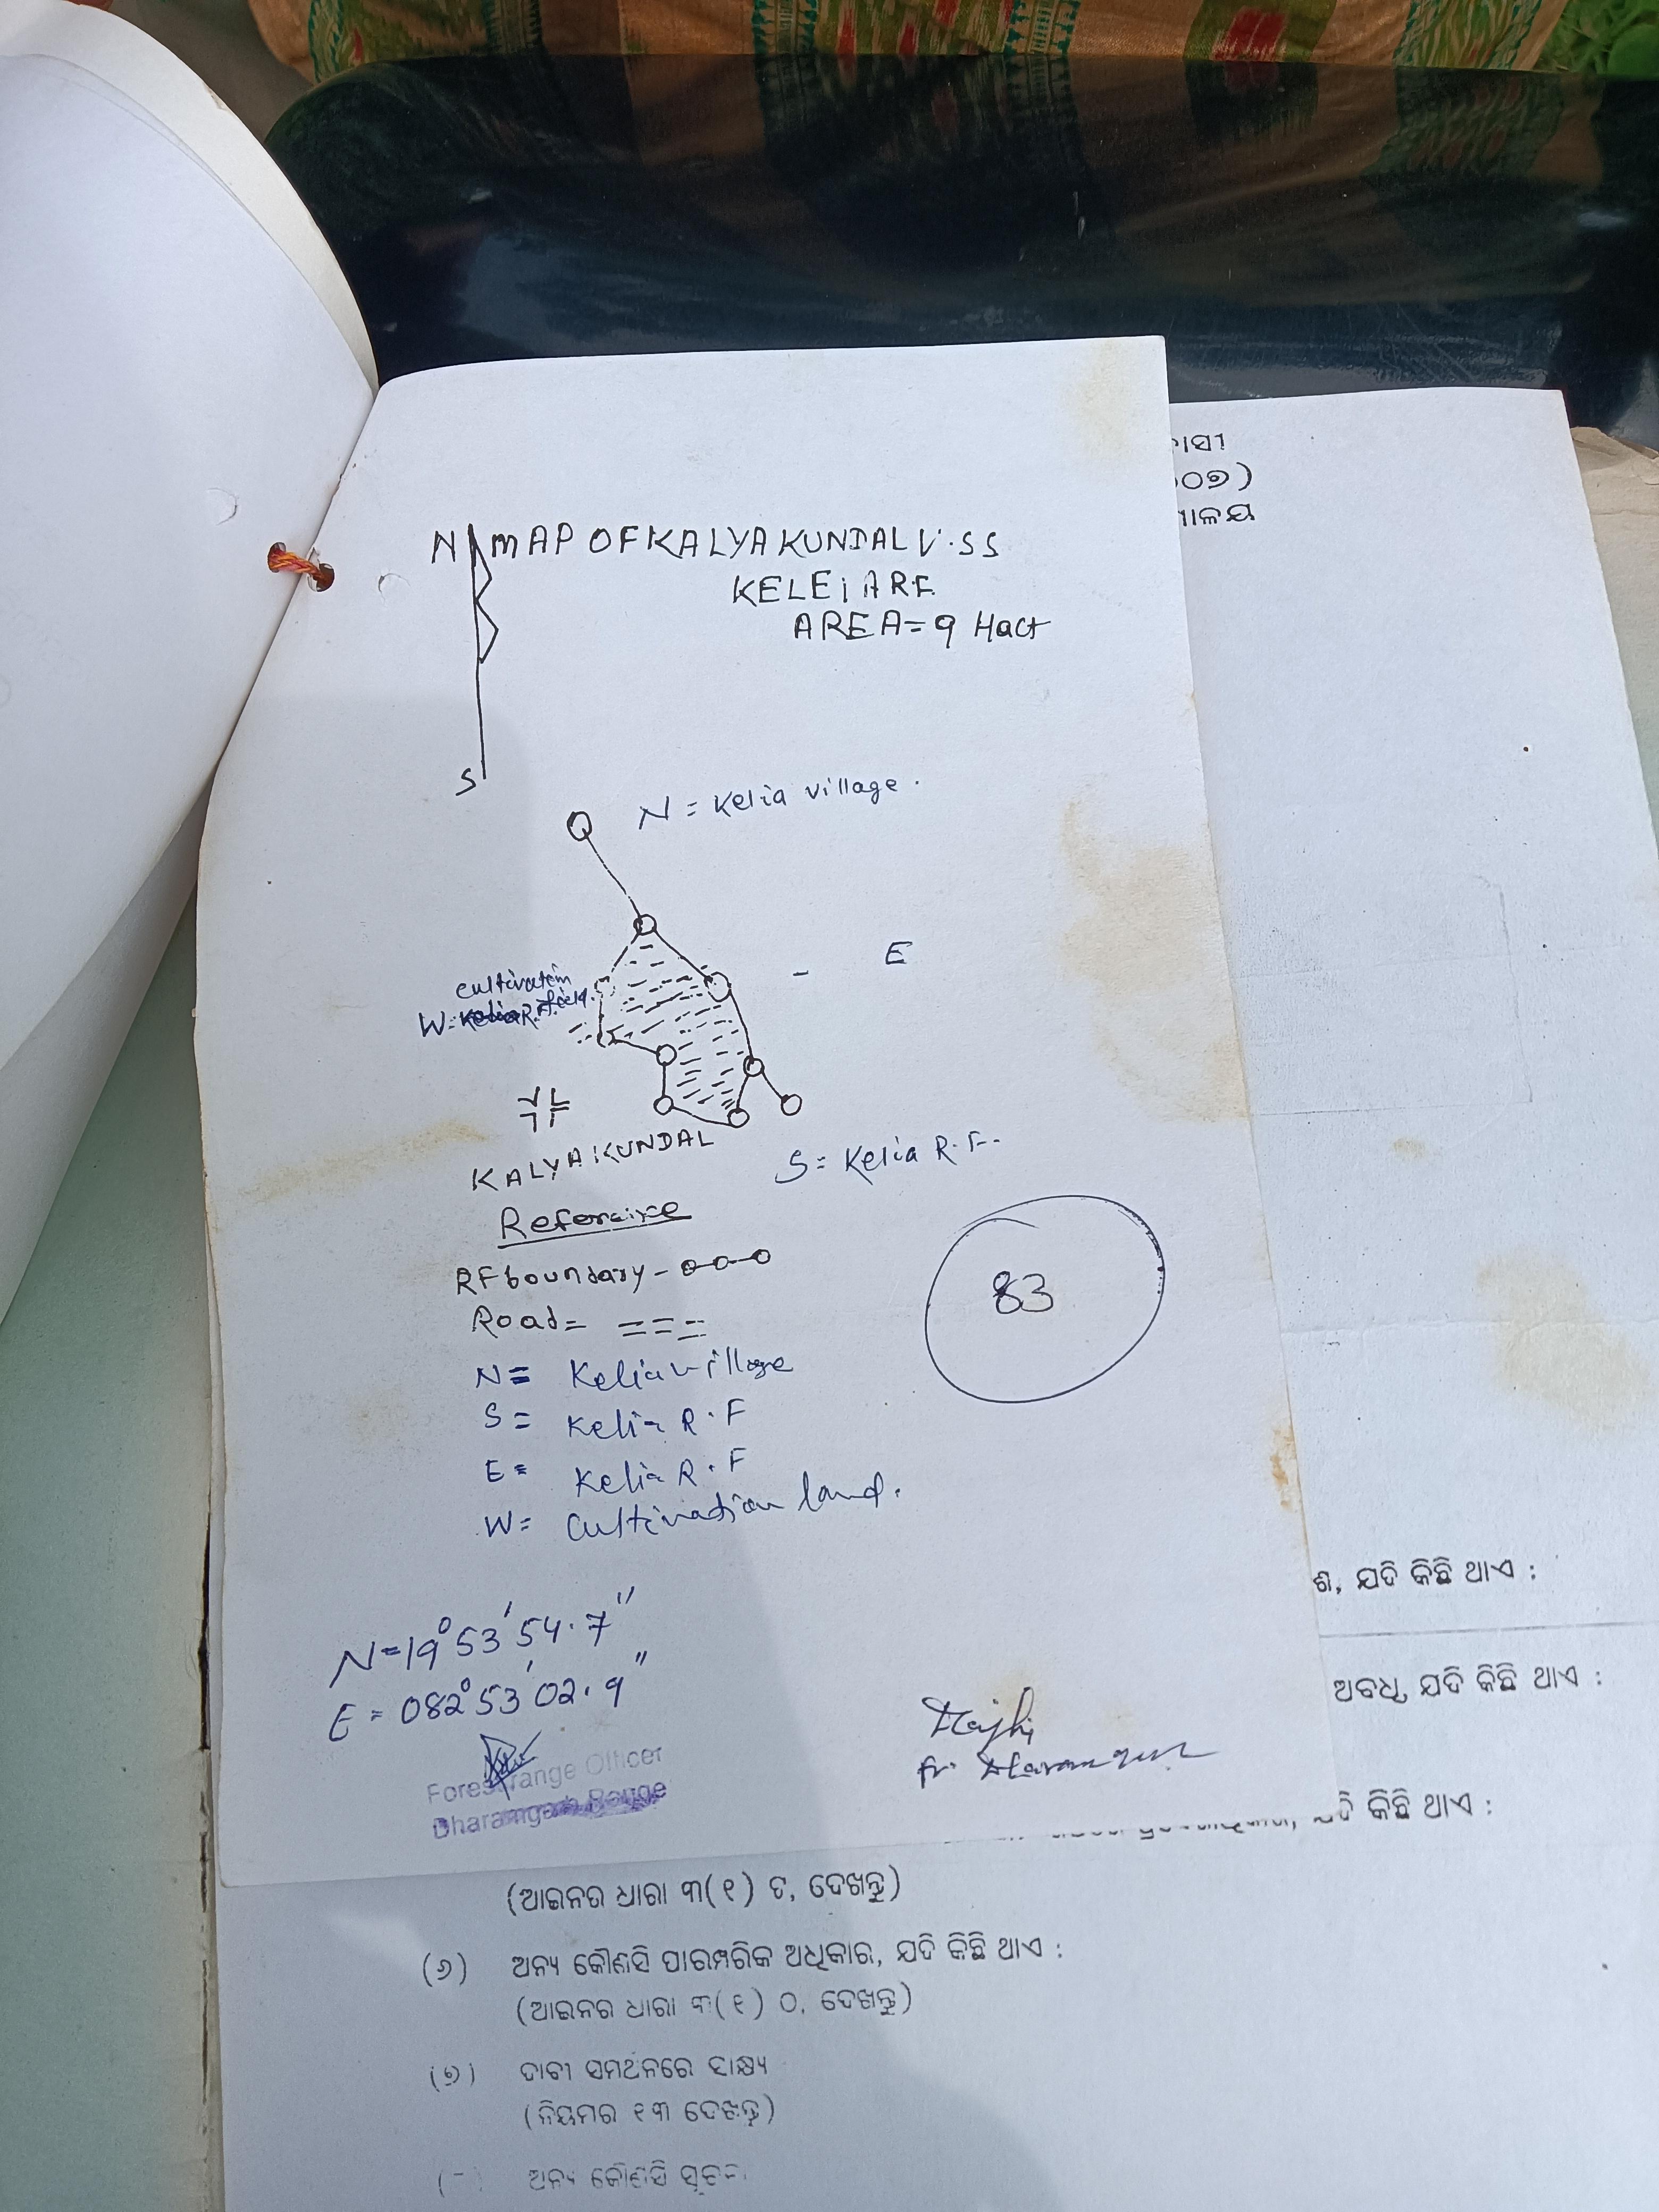 N MAP OF KALYAKUNDAL V.SS
KELEiA R.F.
AREA=9 Hact
S
N = Kelia village.
E
cultivation
W=
field.
KALYAKUNDAL
S= Kelia R.F.
Reference
RF boundary-
Road=
83
N= Kelia village
S= Kelia R.F
E= Kelia R.F
W= Cultivation land.
N=19°53'54.7"
E=082°53'02.9"
Majhi
Forest Range Officer
Dharamgarh Range
୦୭)
ଶ, ଯଦି କିଛି ଥାଏ :
ଅବଧି, ଯଦି କିଛି ଥାଏ :
ଦି କିଛି ଥାଏ :
(ଆଇନର ଧାରା ୩(୧) ଟ, ଦେଖନ୍ତୁ)
(୬) ଅନ୍ୟ କୌଣସି ପାରମ୍ପରିକ ଅଧିକାର, ଯଦି କିଛି ଥାଏ :
(ଆଇନର ଧାରା ୩(୧) ଠ, ଦେଖନ୍ତୁ)
(୭) ଦାବୀ ସମର୍ଥନରେ ସାକ୍ଷ୍ୟ
(ନିୟମର ୧୩ ଦେଖନ୍ତୁ)
ଅନ୍ୟ କୌଣସି ସୂଚନା